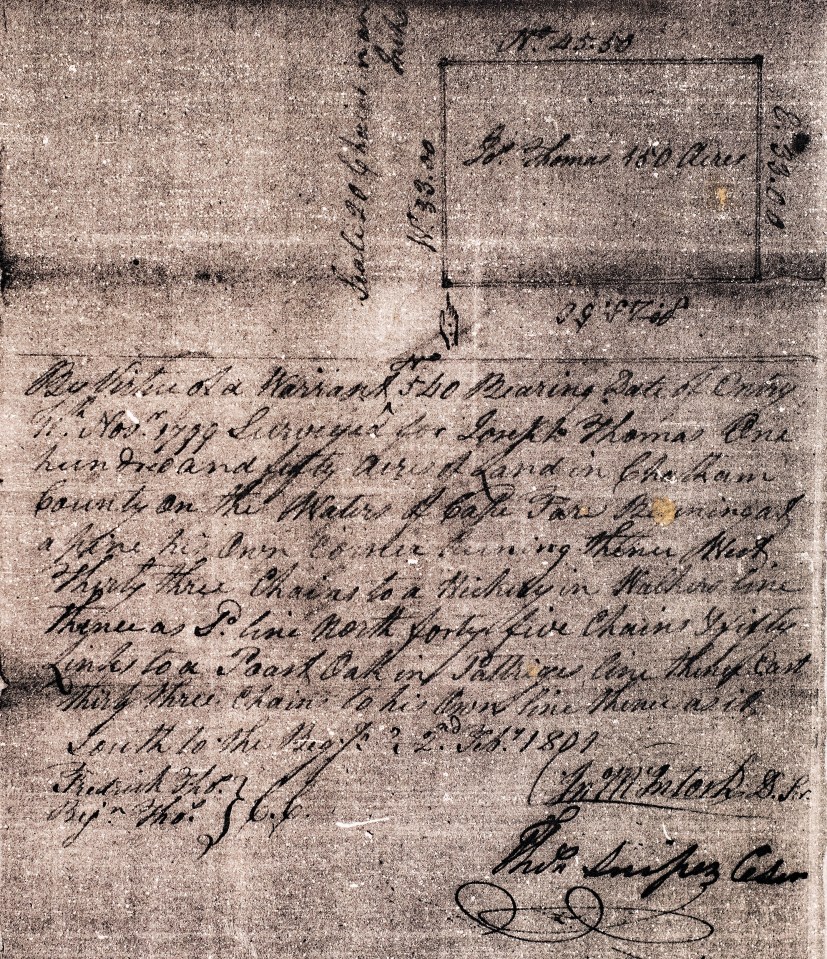 No 45.50
Scale 20 Chains pr an
Inch
Wt 33.00
Jos Thomas 150 Acres
E 33.00
By Virtue of a Warrant No 540 Bearing Date of Entry
Novr 1799 Surveyed for Joseph Thomas One
hundred and fifty Acres of Land in Chatham
County on the Waters of Cape Fare at
a pine his Own Corner Runing thence West
Thirty three Chains to a Hickory in Walkers line
thence as Sd line North forty five Chains & fifty
Links to a Poast Oak in line thence East
thirty three Chains to his Own line thence as it
South to the Begg 2nd Feby 1801
Fredrick Thos
Bejn Thos } C.C.
Jn McIntosh D. Sr
Thos Snipez